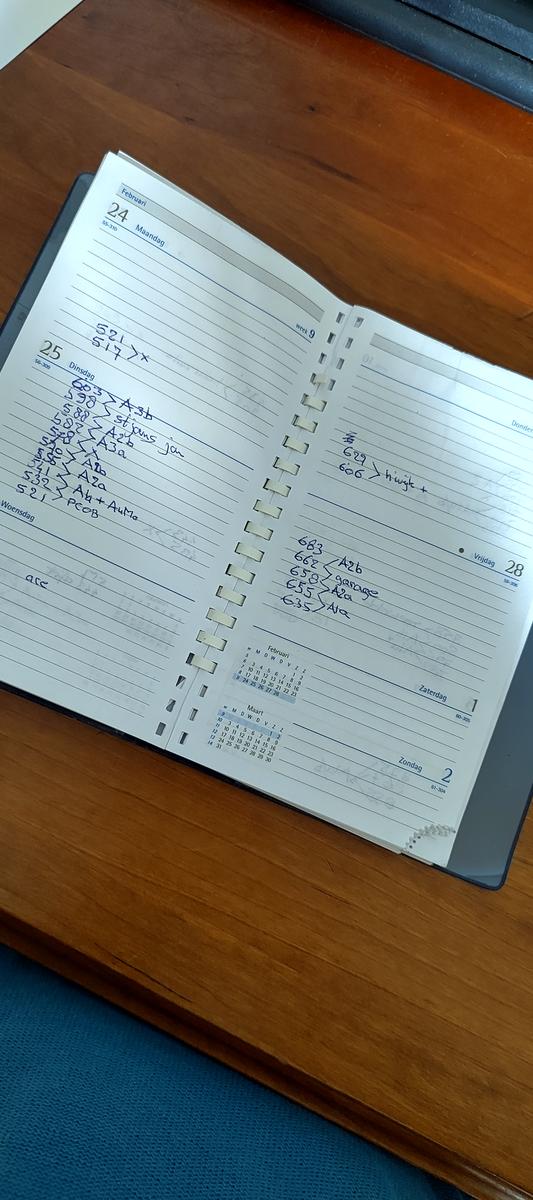 Februari
24
Maandag
55-310
week 9
521
517 > x
25
Dinsdag
56-309
603 > A3b
598 > st jans jan
588
582 > A2b
A3a
x
A2b
A2a
532 > A4 + AuMa
521 > PCOB
Woensdag
are
Donder
629
606 > hiwijk +
Vrijdag
28
59-306
683
662 < A2b
658 > garage
655 < A2a
635 > A1a
Zaterdag
1
60-305
Zondag
2
61-304
Februari
W M D W D V Z Z
5 1 2
6 3 4 5 6 7 8 9
7 10 11 12 13 14 15 16
8 17 18 19 20 21 22 23
9 24 25 26 27 28
Maart
W M D W D V Z Z
9 1 2
10 3 4 5 6 7 8 9
11 10 11 12 13 14 15 16
12 17 18 19 20 21 22 23
13 24 25 26 27 28 29 30
14 31